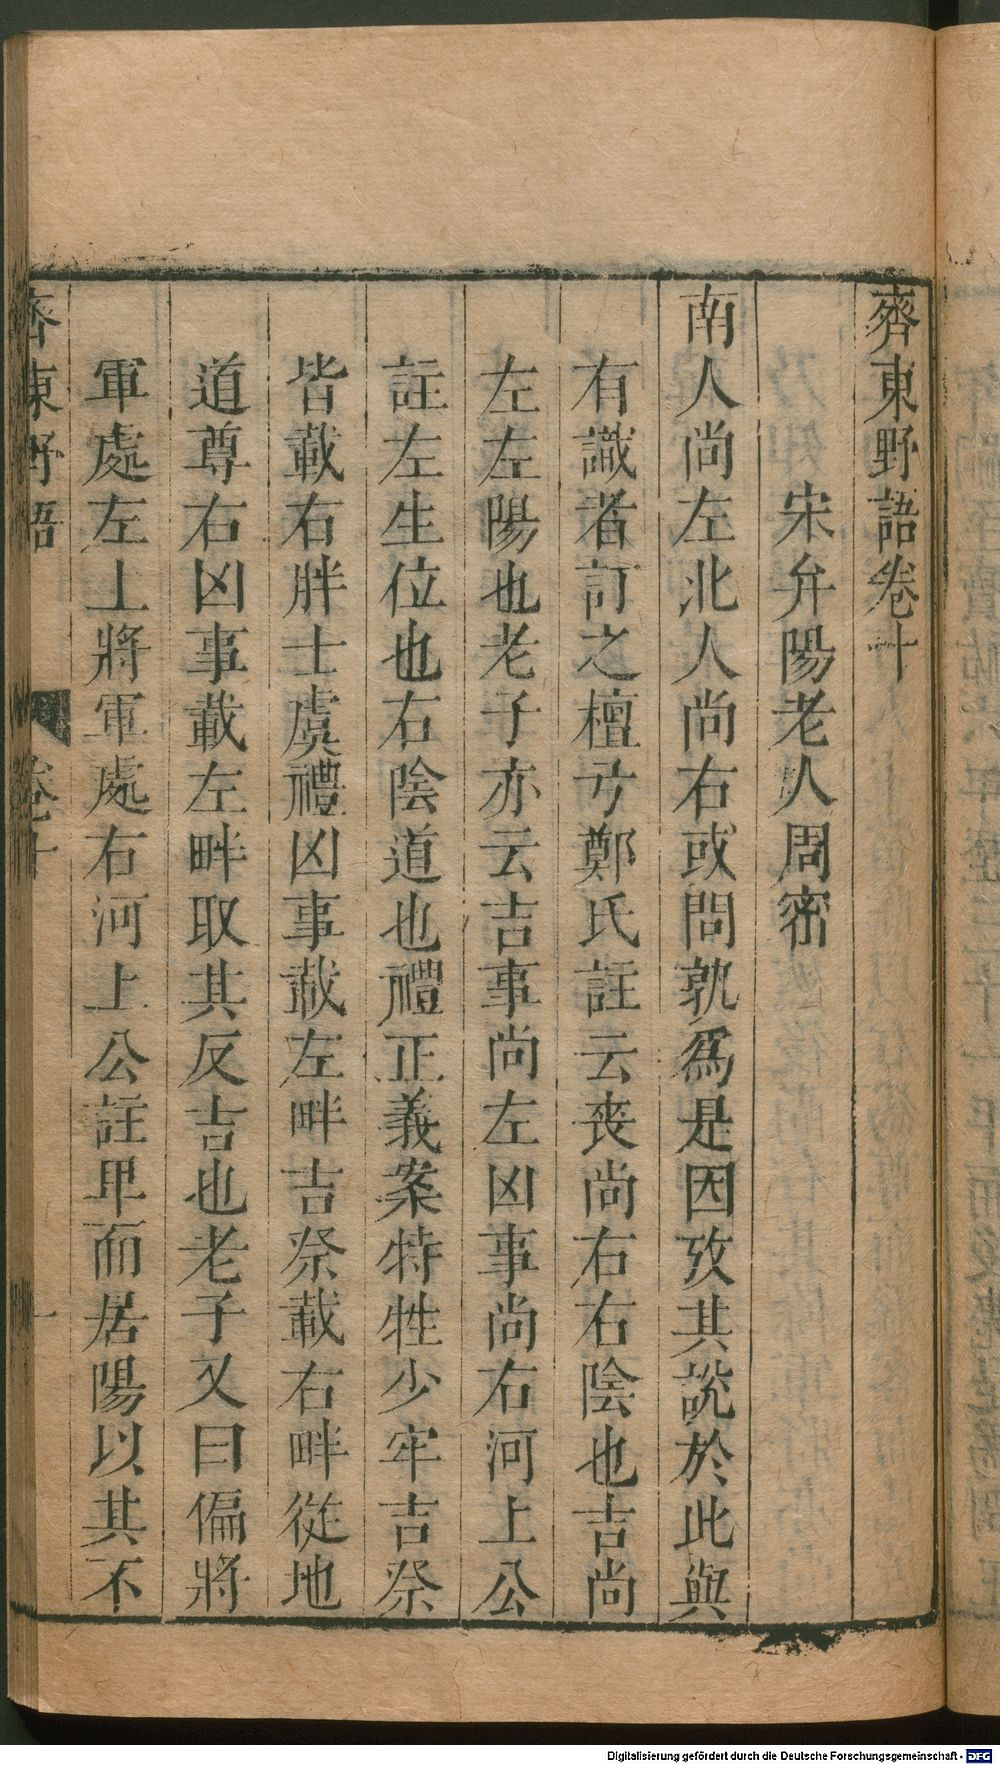 齊東野語卷十
宋弁陽老人周密
南人尚左北人尚右或問孰爲是因攷其說於此與
有識者訂之檀弓鄭氏註云喪尚右右陰也吉尚
左左陽也老子亦云吉事尚左凶事尚右河上公
註左生位也右陰道也禮正義案特牲少牢吉祭
皆載右胖士虞禮凶事載左畔吉祭載右畔從地
道尊右凶事載左畔取其反吉也老子又曰偏將
軍處左上將軍處右河上公註卑而居陽以其不
齊東野語 卷十 一
Digitalisierung gefördert durch die Deutsche Forschungsgemeinschaft - DFG